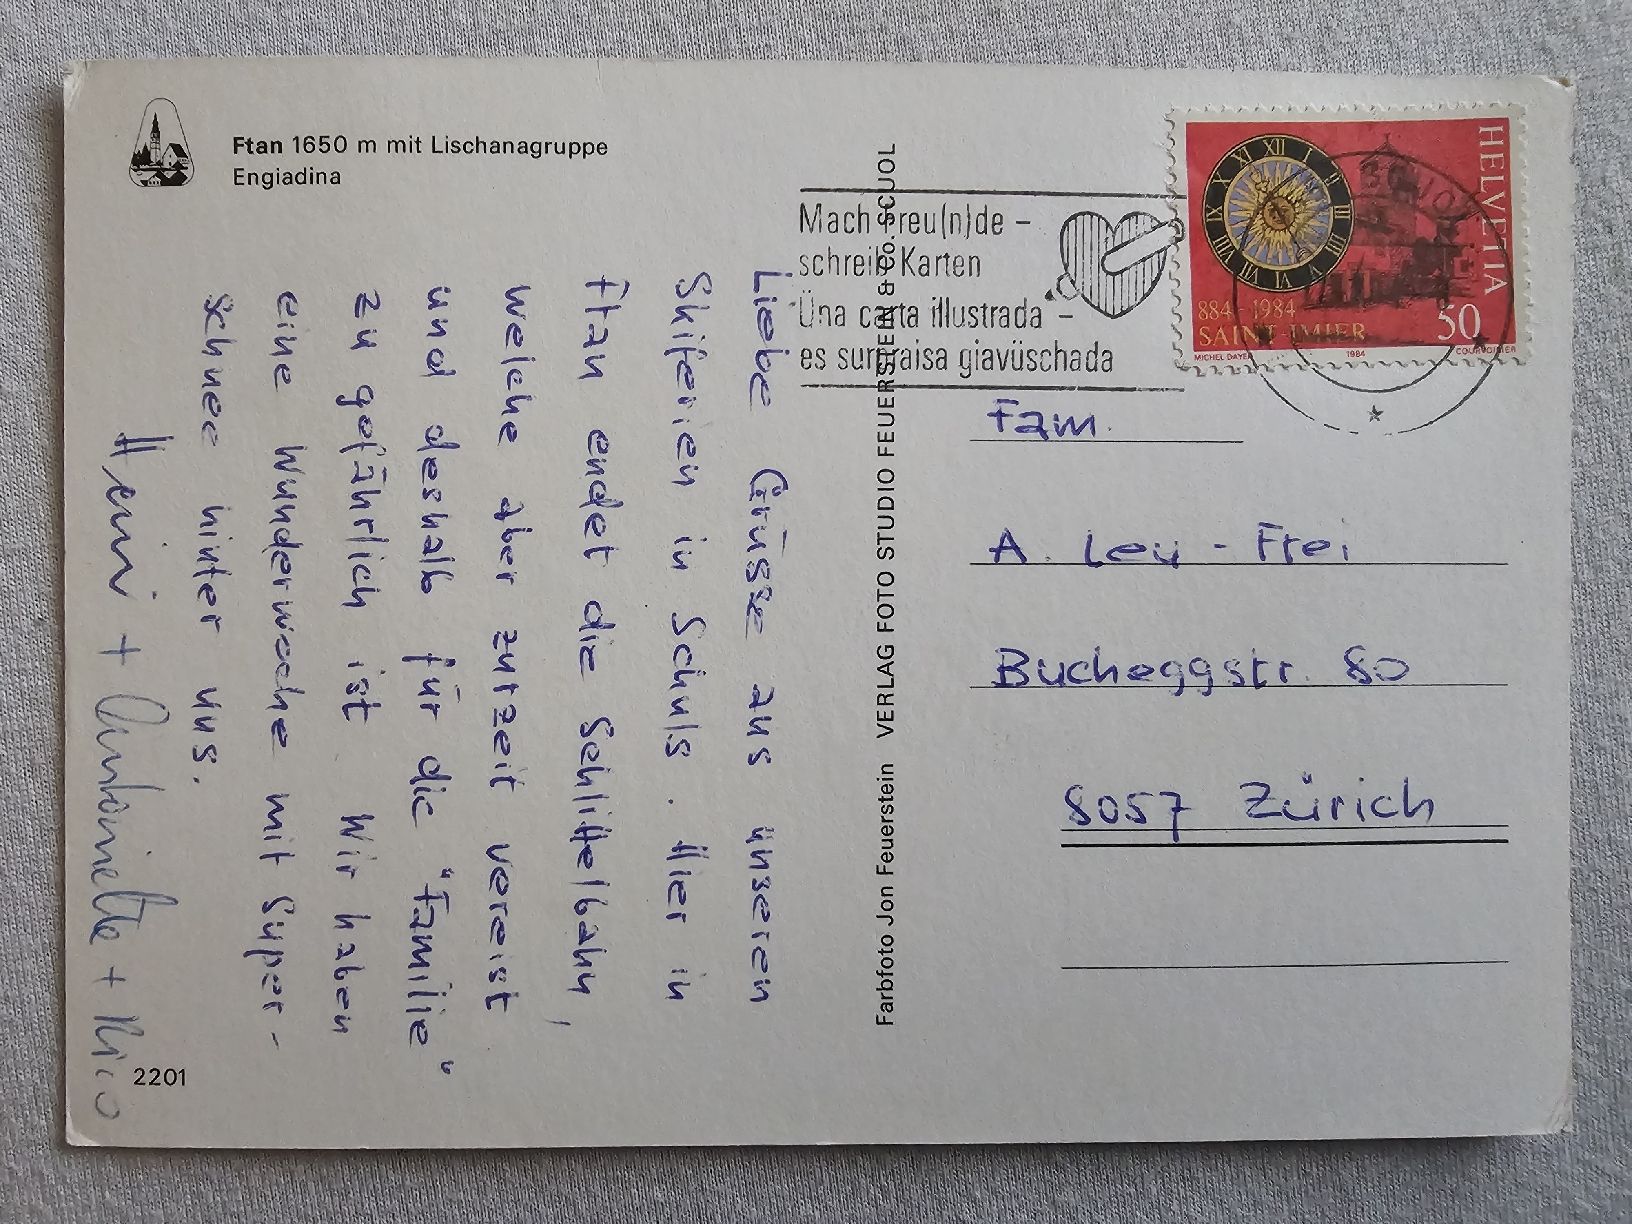 Ftan 1650 m mit Lischanagruppe
Engiadina
Mach Freu(n)de –
schreib Karten
Üna carta illustrada –
es surpraisa giavüschada
HELVETIA
884-1984
SAINT-IMIER
50
MICHEL DAYER
1984
COURVOISIER
SCUOL
Liebe Grüsse aus unseren
Skiferien in Schuls. Hier in
Ftan endet die Schlittelbahn,
welche aber zurzeit vereist
und deshalb für die "Familie"
zu gefährlich ist. Wir haben
eine Wunderwoche mit Super-
schnee hinter uns.
Heini + Antoinette + Rico
Farbfoto Jon Feuerstein VERLAG FOTO STUDIO FEUERSTEIN & Co. SCUOL
Fam.
A. Leu - Frei
Bucheggstr. 80
8057 Zürich
2201